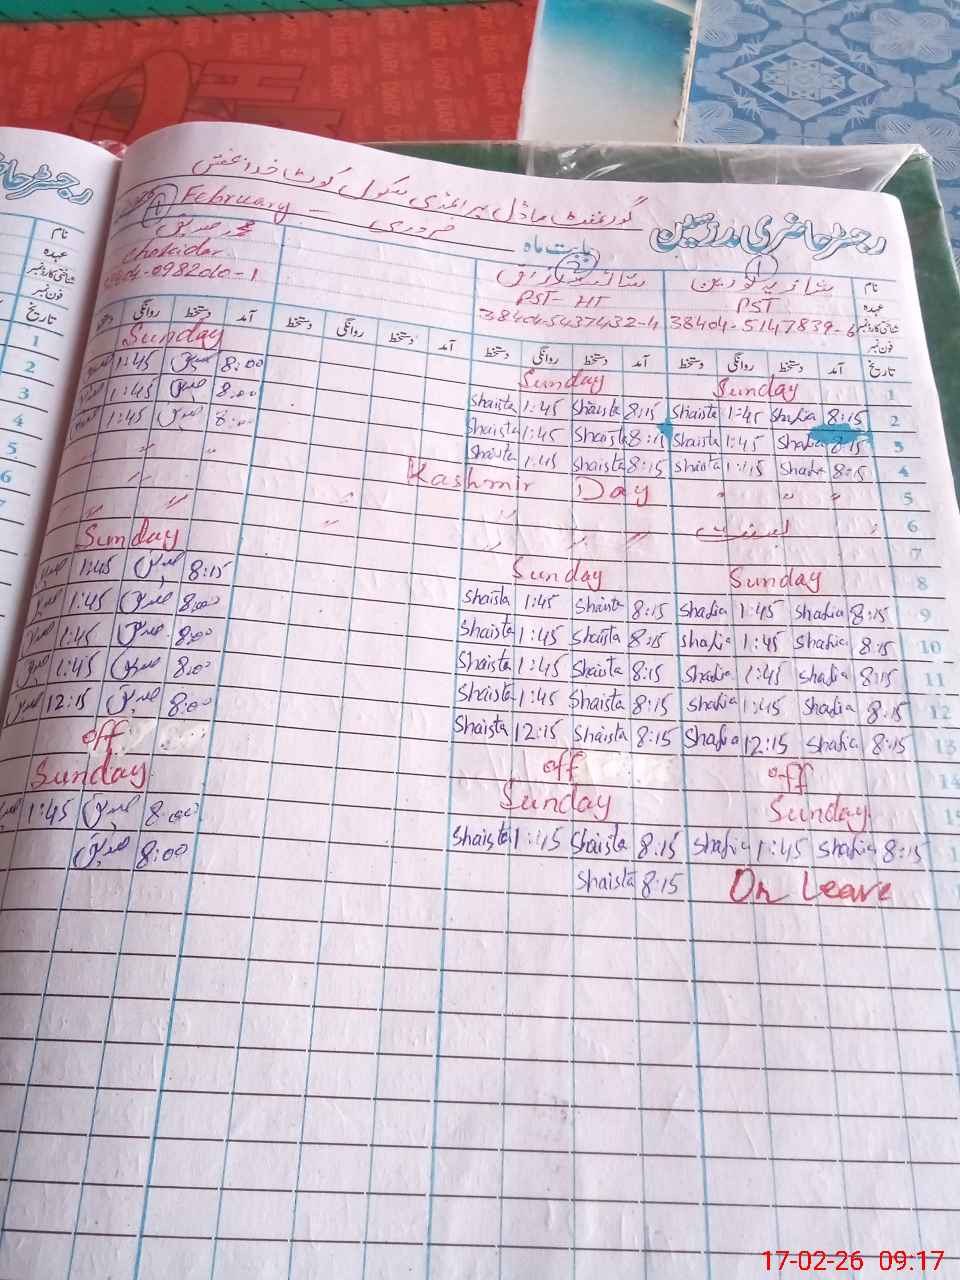 گورنمنٹ ماڈل پرائمری سکول کوٹ خدا بخش
رجسٹر حاضری مدرسین
بابت ماہ فروری February
نام شازیہ نورین
عہدہ PST
شناختی کارڈ نمبر 38404-5147839-6
فون نمبر
PST-HT
38404-5437432-4
محمد صدیق
chokidar
تاریخ آمد دستخط روانگی دستخط آمد دستخط روانگی دستخط آمد دستخط روانگی دستخط آمد دستخط روانگی
1 Sunday Sunday Sunday
2 8:15 Shafia 1:45 Shaista 8:15 Shaista 1:45 Shaista 8:00 1:45
3 8:15 Shafia 1:45 Shaista 8:15 Shaista 1:45 Shaista 8:00 1:45
4 8:15 Shafia 1:45 Shaista 8:15 Shaista 1:45 Shaista 8:00 1:45
5 Kashmir Day " " "
6 " " "
7 " " "
8 Sunday Sunday Sunday
9 8:15 Shafia 1:45 Shafia 8:15 Shaista 1:45 Shaista 8:15 1:45
10 8:15 Shafia 1:45 Shafia 8:15 Shaista 1:45 Shaista 8:00 1:45
11 8:15 Shafia 1:45 Shafia 8:15 Shaista 1:45 Shaista 8:00 1:45
12 8:15 Shafia 1:45 Shafia 8:15 Shaista 1:45 Shaista 8:00 1:45
13 8:15 Shafia 12:15 Shafia 8:15 Shaista 12:15 Shaista 8:00 12:15
14 off off off
Sunday Sunday Sunday
8:15 Shafia 1:45 Shafia 8:15 Shaista 1:45 Shaista 8:00 1:45
On Leave 8:15 Shaista 8:00
رجسٹر
نام
عہدہ
شناختی کارڈ نمبر
فون نمبر
تاریخ
1
2
3
4
5
6
7
17-02-26 09:17